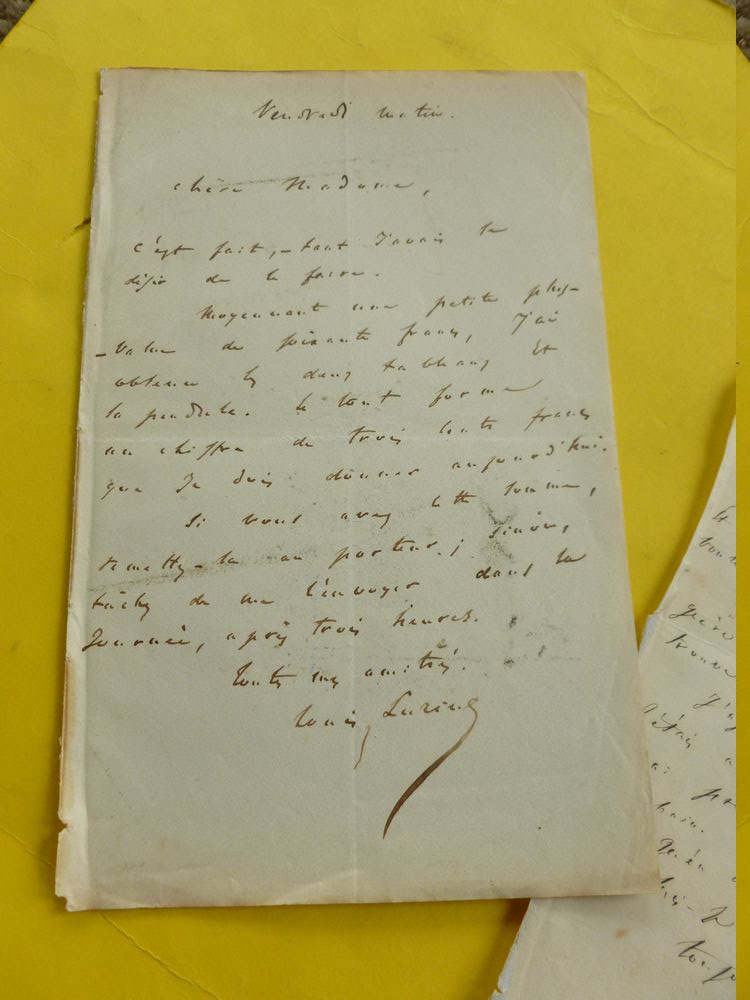 Vendredi matin.
chère Madame,
c'est fait, - tant J'avais le
désir de le faire.
Moyennant une petite plus-
-value de soixante francs, J'ai
obtenu les deux tableaux et
la pendule. le tout forme
au chiffre de trois cents francs
que Je dois donner aujourd'hui.
Si vous avez cette somme,
remettez-la au porteur; sinon,
tâchez de me l'envoyer dans la
Journée, après trois heures.
Toutes mes amitiés.
Louis Lurine
bonne
trouve
J'ai
n'étais
ai
qu'en